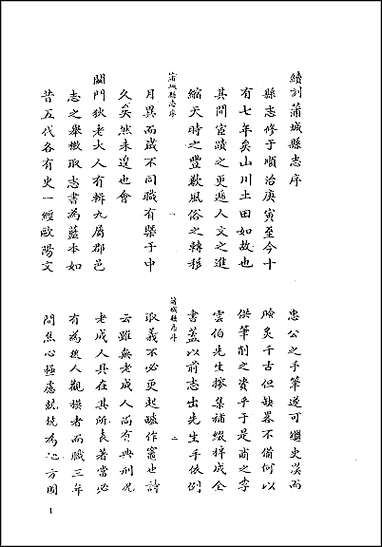 續刻蒲城縣志序
縣志修于順治庚寅至今十
有七年矣山川土田如故也
其間宦蹟之更遞人文之進
縮天時之豐歉風俗之轉移
蒲城縣志序
一
月異而歲不同職有槩于中
久矣然未遑也會
關門狄老大人有輯九屬郡邑
志之舉檄取志書為藍本如
昔五代各有史一經歐陽文
忠公之手筆遂可繼史漢而
膾炙千古但缺畧不備何以
供筆削之資乎于是甫之李
雲伯先生搜集補綴梓成全
書蓋以前志出先生手依例
蒲城縣志序
二
取義不必更起爐作竈也詩
云雖無老成人尚有典刑况
老成人具在其所表著當必
有為後人觀摸者而職三年
間焦心極慮兢兢為地方圖
1